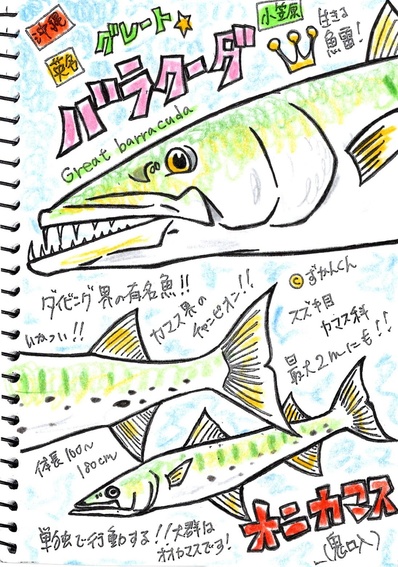 沖縄
英名
グレート★
バラクーダ
小笠原
生きる
魚雷!
Great barracuda
ダイビング界の有名魚!!
いかつい!!
カマス界の
チャンピオン!!
©ずかんくん
スズキ目
カマス科
最大2mにも!!
体長100~
180cm
単独で行動する!!大群は
オオカマスです!
オニカマス
(鬼